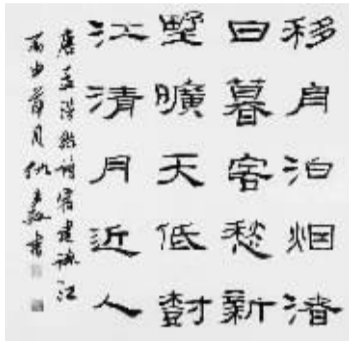 移舟泊烟渚
日暮客愁新
野旷天低树
江清月近人
唐孟浩然诗宿建德江
丙申首月仇高书